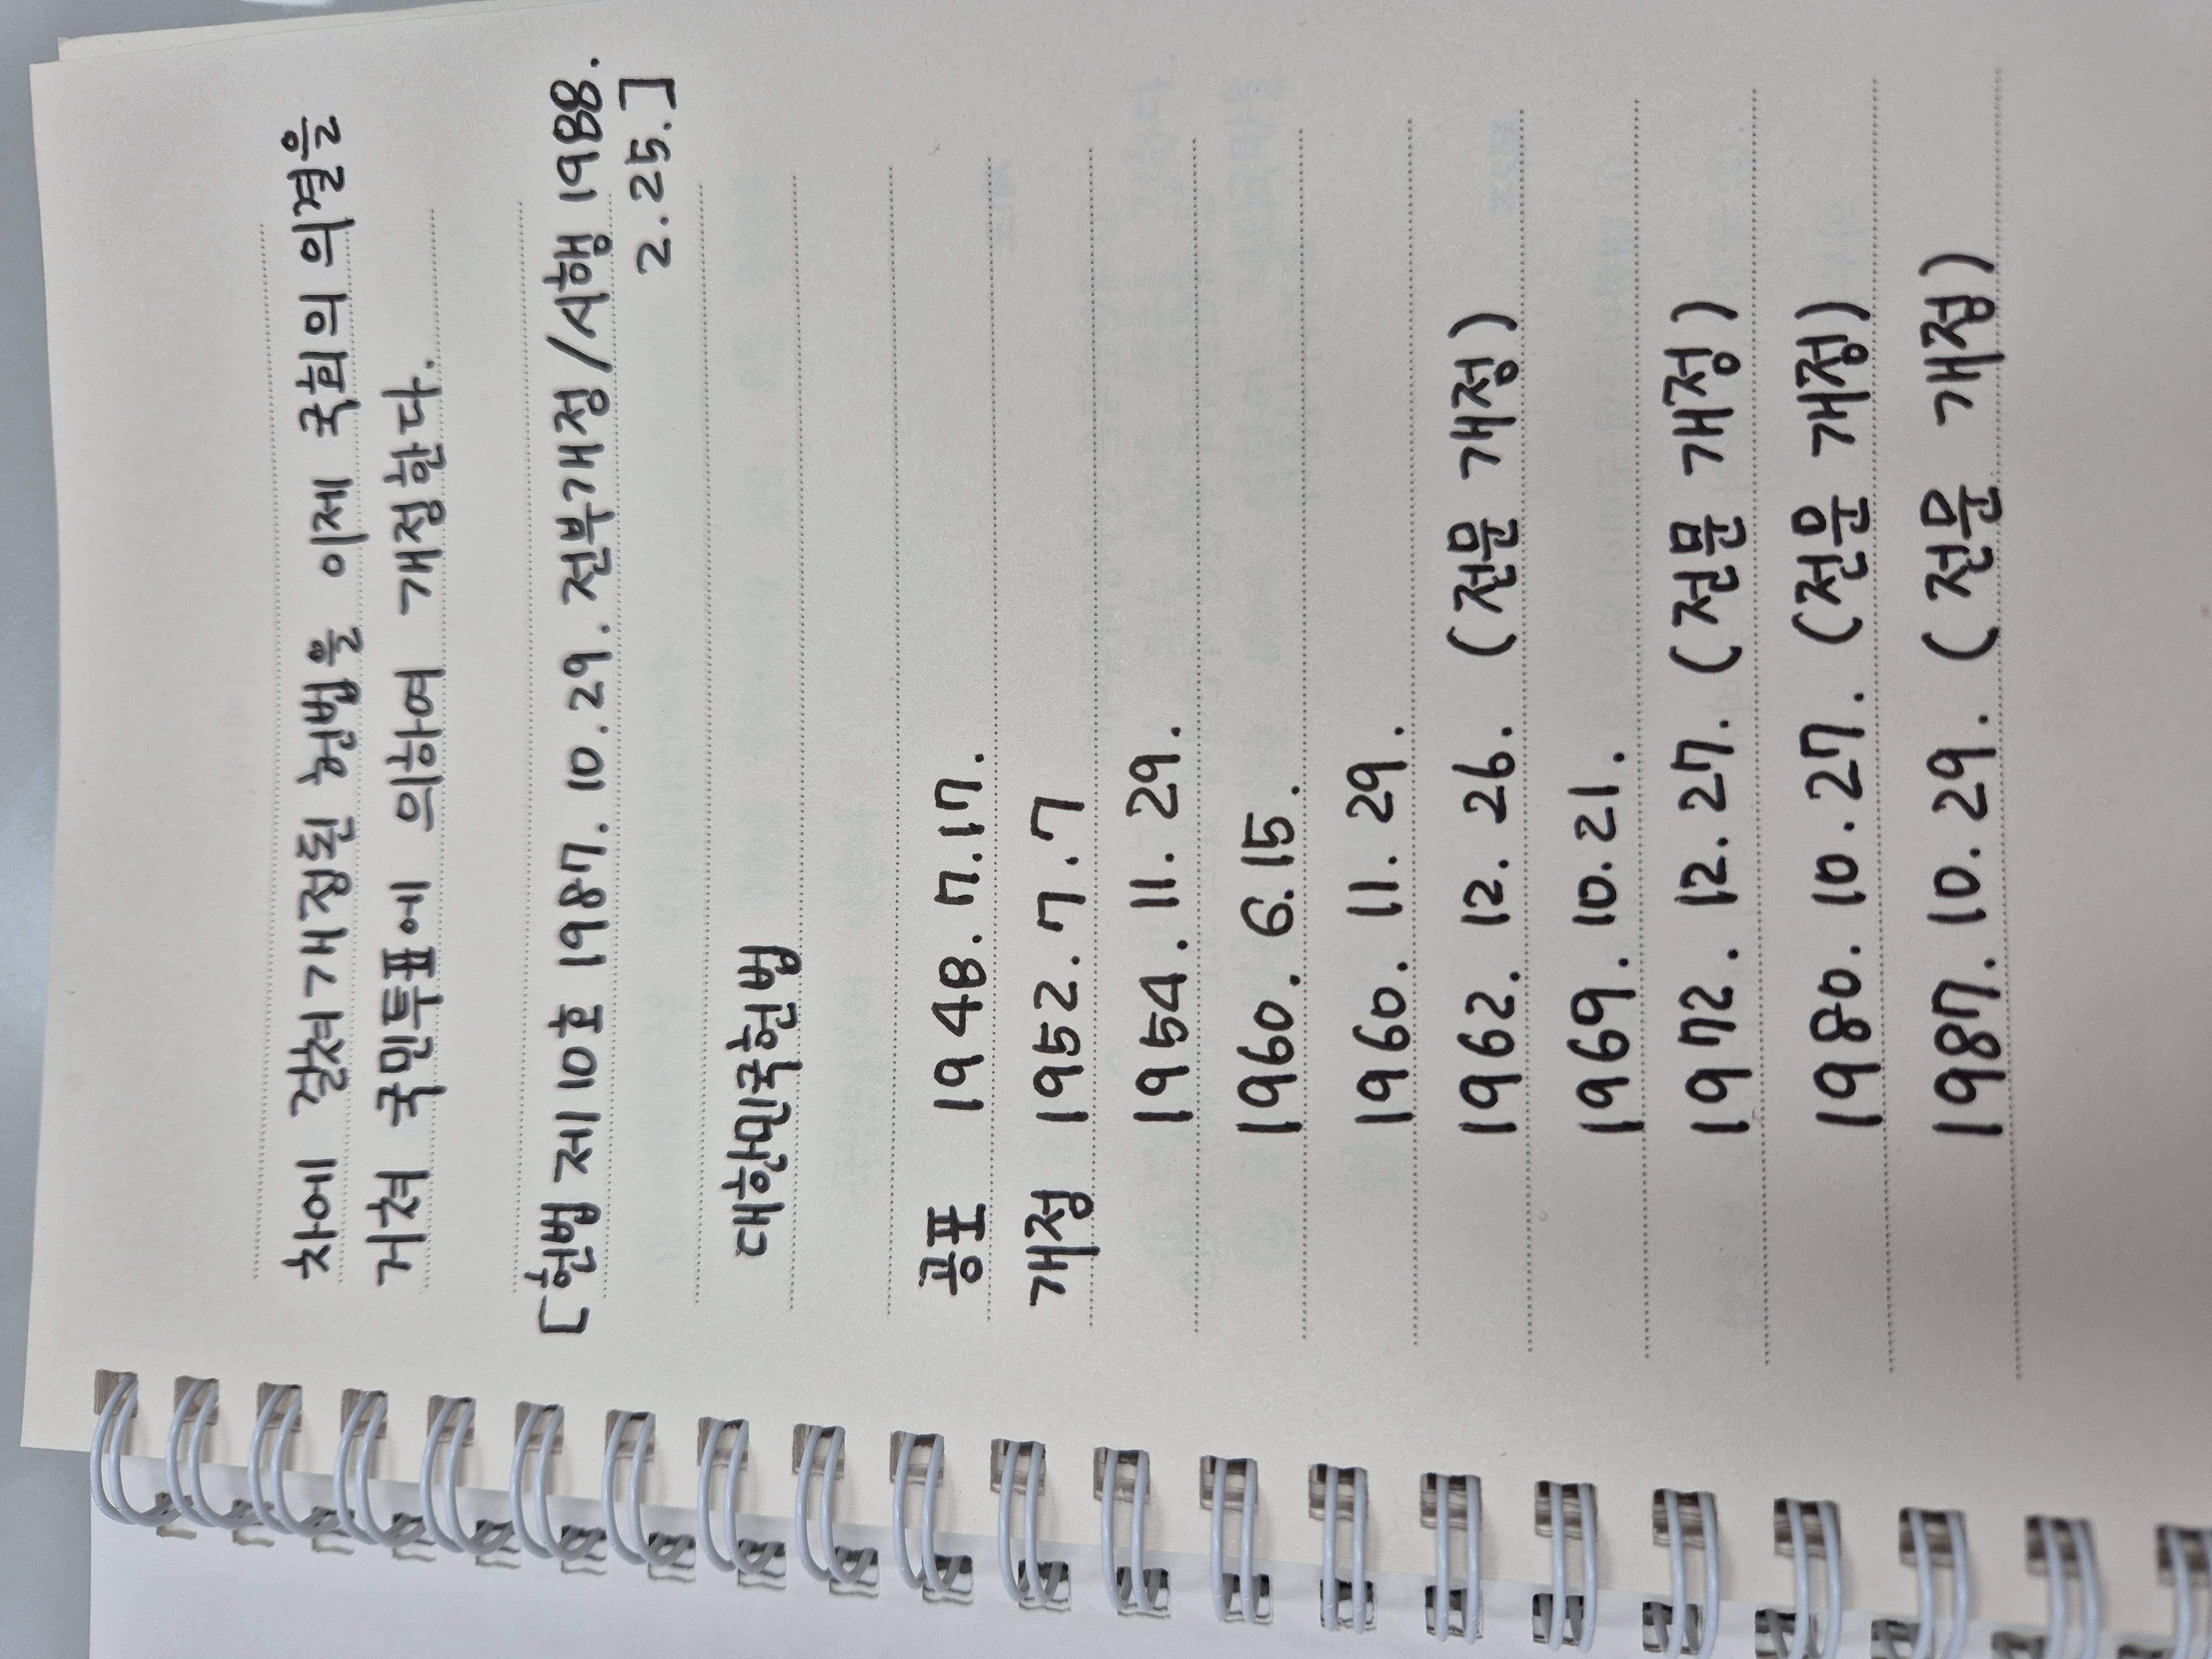 차에 걸쳐 개정된 헌법을 이제 국회의 의결을
거쳐 국민투표에 의하여 개정한다.
[헌법 제10호 1987. 10. 29. 전부개정/시행 1988.
2. 25.]
대한민국헌법
공포 1948. 7. 17.
개정 1952. 7. 7
1954. 11. 29.
1960. 6. 15.
1960. 11. 29.
1962. 12. 26. (전문 개정)
1969. 10. 21.
1972. 12. 27. (전문 개정)
1980. 10. 27. (전문 개정)
1987. 10. 29. (전문 개정)